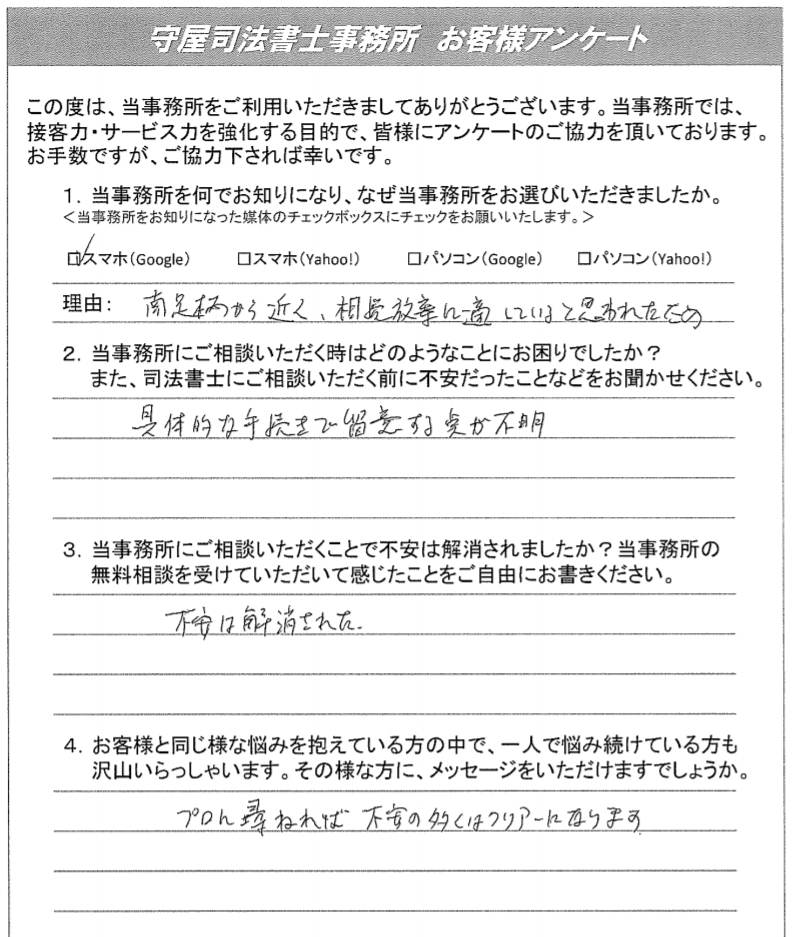 守屋司法書士事務所 お客様アンケート
この度は、当事務所をご利用いただきましてありがとうございます。当事務所では、
接客力・サービス力を強化する目的で、皆様にアンケートのご協力を頂いております。
お手数ですが、ご協力下されば幸いです。
1. 当事務所を何でお知りになり、なぜ当事務所をお選びいただきましたか。
＜当事務所をお知りになった媒体のチェックボックスにチェックをお願いいたします。＞
☑スマホ(Google) □スマホ(Yahoo!) □パソコン(Google) □パソコン(Yahoo!)
理由: 南足柄から近く、相続放棄に適していると思われたため
2. 当事務所にご相談いただく時はどのようなことにお困りでしたか?
また、司法書士にご相談いただく前に不安だったことなどをお聞かせください。
具体的な手続きで留意する点が不明
3. 当事務所にご相談いただくことで不安は解消されましたか?当事務所の
無料相談を受けていただいて感じたことをご自由にお書きください。
不安は解消された.
4. お客様と同じ様な悩みを抱えている方の中で、一人で悩み続けている方も
沢山いらっしゃいます。その様な方に、メッセージをいただけますでしょうか。
プロに尋ねれば 不安の多くはクリアーになります